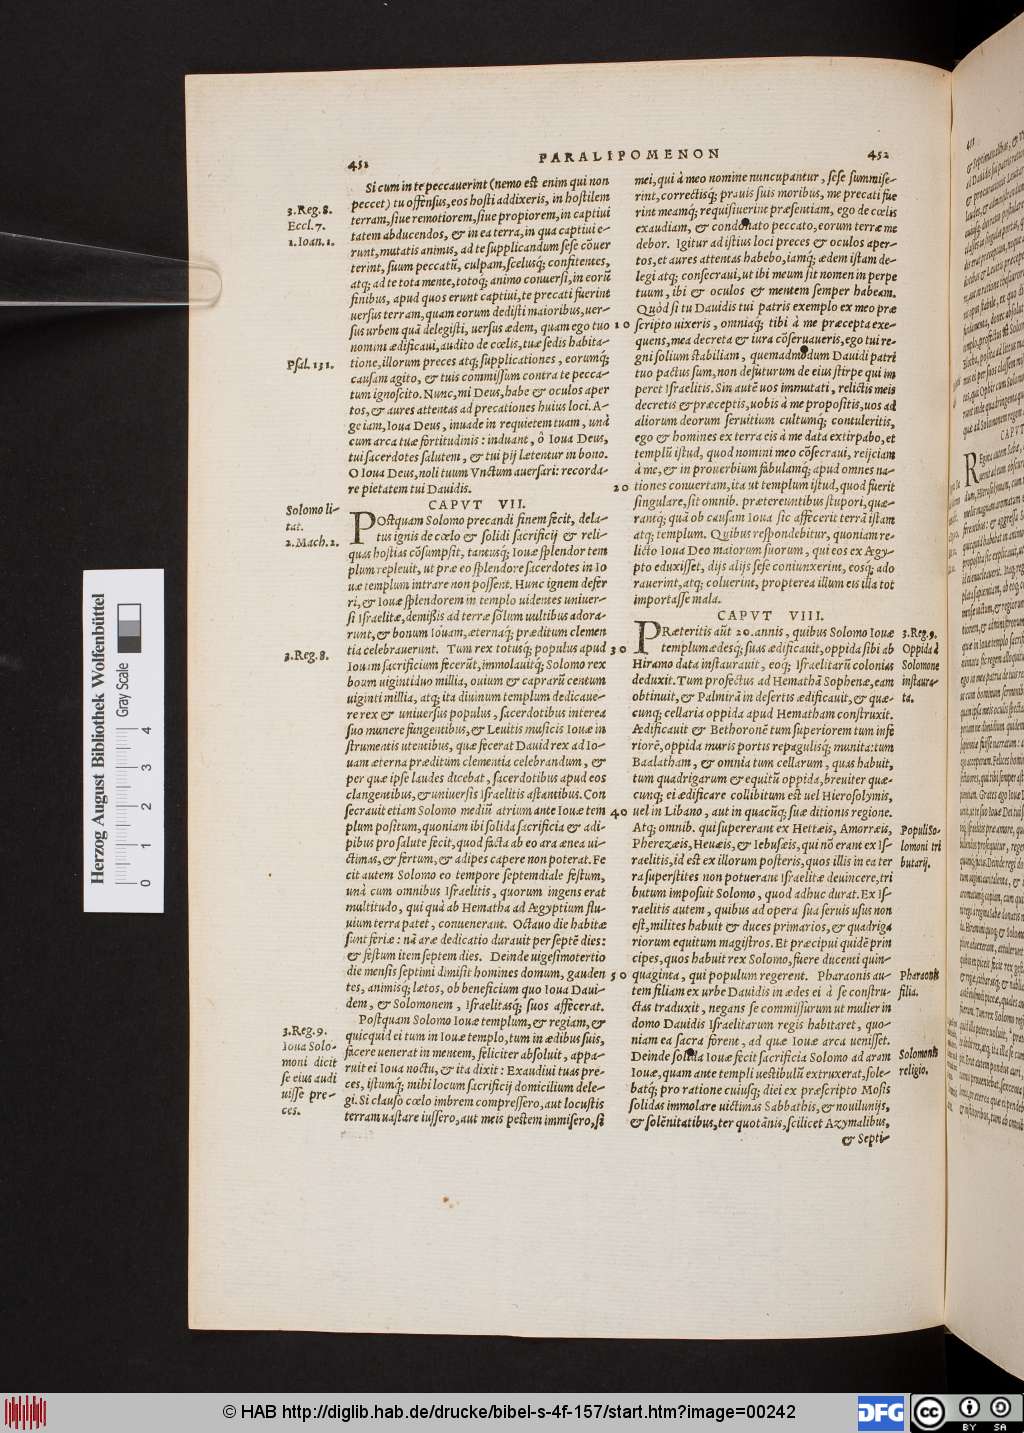 451 PARALIPOMENON 452
3.Reg.8.
Eccl.7.
1.Ioan.1.
Psal.131.
Solomo li-
tat.
2.Mach.2.
3.Reg.8.
3.Reg.9.
Ioua Solo-
moni dicit
se eius audi
uisse pre-
ces.
Si cum in te peccauerint (nemo est enim qui non
peccet) tu offensus, eos hosti addixeris, in hostilem
terram, siue remotiorem, siue propiorem, in captiui
tatem abducendos, & in ea terra, in qua captiui e-
runt, mutatis animis, ad te supplicandum sese cōuer
terint, suum peccatū, culpam, scelusq́; confitentes,
atq; ad te tota mente, totoq́; animo conuersi, in eorū
finibus, apud quos erunt captiui, te precati fuerint
uersus terram, quam eorum dedisti maioribus, uer-
sus urbem quā delegisti, uersus ædem, quam ego tuo
nomini ædificaui, audito de cœlis, tuæ sedis habita-
tione, illorum preces atq; supplicationes, eorumq́;
causam agito, & tuis commissum contra te pecca-
tum ignoscito. Nunc, mi Deus, habe & oculos aper
tos, & aures attentas ad precationes huius loci. A-
ge iam, Ioua Deus, inuade in requietem tuam, unà
cum arca tuæ fortitudinis: induant, ô Ioua Deus,
tui sacerdotes salutem, & tui pij lætentur in bono.
O Ioua Deus, noli tuum Vnctum auersari: recorda-
re pietatem tui Dauidis.
CAPVT VII.
POstquam Solomo precandi finem fecit, dela-
tus ignis de cœlo & solidi sacrificij & reli-
quas hostias cōsumpsit, tantusq́; Iouæ splendor tem
plum repleuit, ut præ eo splendore sacerdotes in Io
uæ templum intrare non possent. Hunc ignem defer
ri, & Iouæ splendorem in templo uidentes uniuer-
si Israelitæ, demißis ad terræ sōlum uultibus adora-
runt, & bonum Iouam, æternaq́; præditum clemen
tia celebrauerunt. Tum rex totusq́; populus apud
Iouam sacrificium fecerūt, immolauitq́; Solomo rex
boum uigintiduo millia, ouium & caprarū centum
uiginti millia, atq; ita diuinum templum dedicaue-
re rex & uniuersus populus, sacerdotibus interea
suo munere fungentibus, & Leuitis musicis Iouæ in
strumentis utentibus, quæ fecerat Dauid rex ad Io-
uam æterna præditum clementia celebrandum, &
per quæ ipse laudes dicebat, sacerdotibus apud eos
clangentibus, & uniuersis Israelitis astantibus. Con
secrauit etiam Solomo mediū atrium ante Iouæ tem
plum positum, quoniam ibi solida sacrificia & adi-
pibus pro salute fecit, quod facta ab eo ara ænea ui-
ctimas, & fertum, & adipes capere non poterat. Fe
cit autem Solomo eo tempore septemdiale festum,
unà cum omnibus Israelitis, quorum ingens erat
multitudo, qui quà ab Hematha ad Ægyptium flu-
uium terra patet, conuenerant. Octauo die habitæ
sunt feriæ: nā aræ dedicatio durauit per septē dies:
& festum item septem dies. Deinde uigesimotertio
die mensis septimi dimisit homines domum, gauden
tes, animisq́; lætos, ob beneficium quo Ioua Daui-
dem, & Solomonem, Israelitasq́; suos affecerat.
Postquam Solomo Iouæ templum, & regiam, &
quicquid ei tum in Iouæ templo, tum in ædibus suis,
facere uenerat in mentem, feliciter absoluit, appa-
ruit ei Ioua noctu, & ita dixit: Exaudiui tuas pre-
ces, istumq́; mihi locum sacrificij domicilium dele-
gi. Si clauso cœlo imbrem compressero, aut locustis
terram uastare iussero, aut meis pestem immisero, si
10
20
30
40
50
mei, qui à meo nomine nuncupantur, sese summise-
rint, correctisq́; prauis suis moribus, me precati fue
rint meamq́; requisiuerint præsentiam, ego de cœlis
exaudiam, & condonato peccato, eorum terræ me
debor. Igitur ad istius loci preces & oculos aper-
tos, et aures attentas habebo, iamq́; ædem istam de-
legi atq; consecraui, ut ibi meum sit nomen in perpe
tuum, ibi & oculos & mentem semper habeam.
Quòd si tu Dauidis tui patris exemplo ex meo præ
scripto uixeris, omniaq́; tibi à me præcepta exe-
quens, mea decreta & iura cōseruaueris, ego tui re-
gni solium stabiliam, quemadmodum Dauidi patri
tuo pactus sum, non defuturum de eius stirpe qui im
peret Israelitis. Sin autē uos immutati, relictis meis
decretis & præceptis, uobis à me propositis, uos ad
aliorum deorum seruitium cultumq́; contuleritis,
ego & homines ex terra eis à me data extirpabo, et
templū istud, quod nomini meo cōsecraui, reijciam
à me, & in prouerbium fabulamq́; apud omnes na-
tiones conuertam, ita ut templum istud, quod fuerit
singulare, sit omnib. prætereuntibus stupori, quæ-
rantq́; quā ob causam Ioua sic affecerit terrā istam
atq; templum. Quibus respondebitur, quoniam re-
licto Ioua Deo maiorum suorum, qui eos ex Ægy-
pto eduxisset, dijs alijs sese coniunxerint, eosq́; ado
rauerint, atq; coluerint, propterea illum eis illa tot
importasse mala.
CAPVT VIII.
PRæteritis aūt 20. annis, quibus Solomo Iouæ
templum ædesq́; suas ædificauit, oppida sibi ab
Hiramo data instaurauit, eoq́; Israelitarū colonias
deduxit. Tum profectus ad Hemathā Sophenæ, eam
obtinuit, & Palmirā in desertis ædificauit, & quæ-
cunq; cellaria oppida apud Hematham construxit.
Ædificauit & Bethoronē tum superiorem tum infe
riorē, oppida muris portis repagulisq́; munita: tum
Baalatham, & omnia tum cellarum, quas habuit,
tum quadrigarum & equitū oppida, breuiter quæ-
cunq; ei ædificare collibitum est uel Hierosolymis,
uel in Libano, aut in quacūq; suæ ditionis regione.
Atq; omnib. qui supererant ex Hettæis, Amorræis,
Pherezæis, Heuæis, & Iebusæis, qui nō erant ex Is-
raelitis, id est ex illorum posteris, quos illis in ea ter
ra superstites non potuerant Israelitæ deuincere, tri
butum imposuit Solomo, quod adhuc durat. Ex Is-
raelitis autem, quibus ad opera sua seruis usus non
est, milites habuit & duces primarios, & quadriga
riorum equitum magistros. Et præcipui quidē prin
cipes, quos habuit rex Solomo, fuere ducenti quin-
quaginta, qui populum regerent. Pharaonis au-
tem filiam ex urbe Dauidis in ædes ei à se constru-
ctas traduxit, negans se commissurum ut mulier in
domo Dauidis Israelitarum regis habitaret, quo-
niam ea sacra forent, ad quæ Iouæ arca uenisset.
Deinde solida Iouæ fecit sacrificia Solomo ad aram
Iouæ, quam ante templi uestibulū extruxerat, sole-
batq́; pro ratione cuiusq; diei ex præscripto Mosis
solidas immolare uictimas Sabbathis, & nouilunijs,
& solēnitatibus, ter quotānis, scilicet Azymalibus,
& Septi-
3.Reg.9.
Oppida à
Solomone
instaura-
ta.
Populi So-
lomoni tri
butarij.
Pharaonis
filia.
Solomonis
religio.
Herzog August Bibliothek Wolfenbüttel
Gray Scale
0 1 2 3 4
© HAB http://diglib.hab.de/drucke/bibel-s-4f-157/start.htm?image=00242
DFG
cc
BY SA